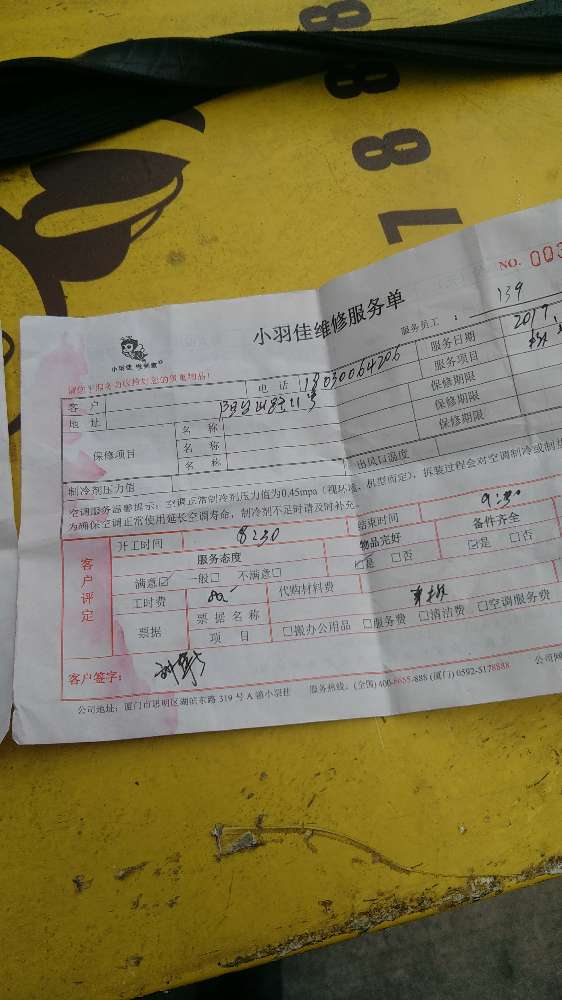 8
8
8
7
NO. 003
小羽佳维修服务单
服务员工: 139
小羽佳
客户
电话 18030064206
服务日期 2017.
地址
11号
服务项目
保修项目
名称
保修期限
名称
保修期限
名称
保修期限
制冷剂压力值
出风口温度
空调服务温馨提示:空调正常制冷剂压力值为0.45mpa(视环境、机型而定),拆装过程会对空调制冷或制热
为确保空调正常使用延长空调寿命,制冷剂不足时请及时补充。
客户评定
开工时间 8:30
结束时间 9:30
服务态度
物品完好
备件齐全
满意☑ 一般□ 不满意□
☑是 □否
☑是 □否
工时费 80
代购材料费
票据
票据名称
项目
□搬办公用品 □服务费 □清洁费 □空调服务费
客户签字:
公司地址:厦门市思明区湖滨东路319号A浦小羽佳 服务热线:(全国)400-8655-888 (厦门)0592-5178888 公司网